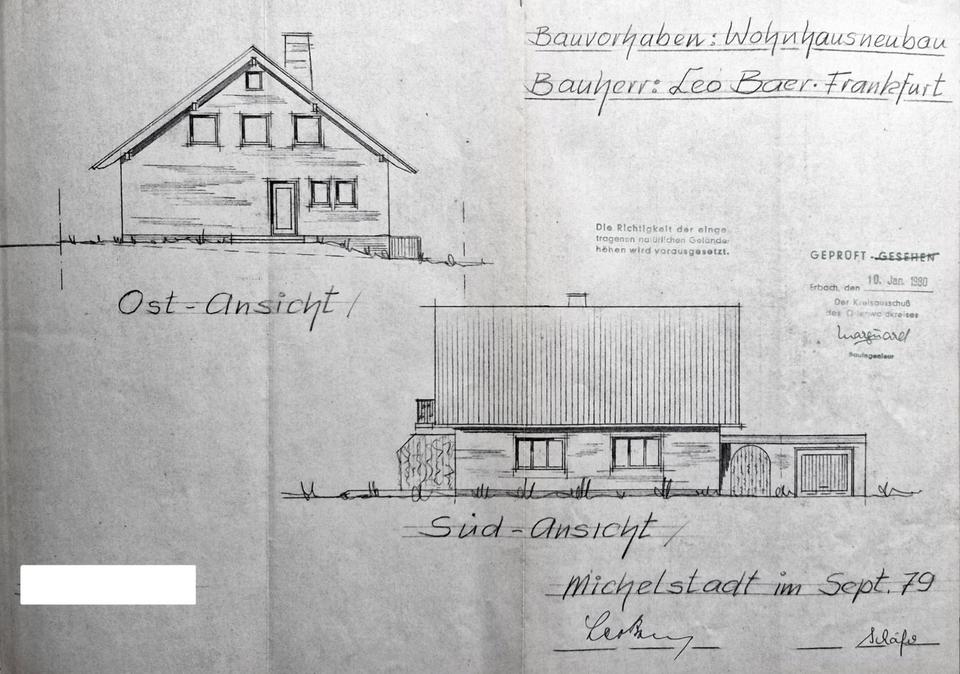 Bauvorhaben: Wohnhausneubau
Bauherr: Leo Baer. Frankfurt
Die Richtigkeit der einge
tragenen natürlichen Geländer
höhen wird vorausgesetzt.
GEPRÜFT - GESEHEN
Erbach, den 10. Jan. 1980
Der Kreisausschuß
des Odenwaldkreises
Marquard
Bauingenieur
Ost-Ansicht/
Süd-Ansicht/
Michelstadt im Sept. 79
Leo Baer
Schäfer